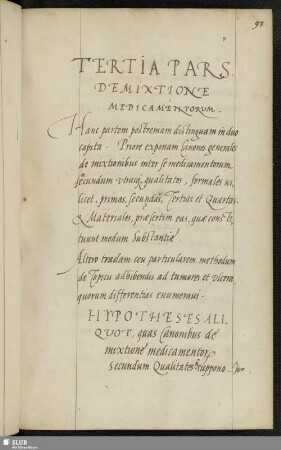 93
TERTIA PARS.
DE MIXTIONE
MEDICAMENTORUM.
Hanc partem postremam distinguam in duo
capita. Priore exponam Canones generales
de mixtionibus inter se medicamentorum
secundum utrasq. qualitates, formales sci,
licet, primas, secundas, Tertias et Quartas
& Materiales, præsertim eas, quæ consti,
tuunt modum Substantiæ
Altero tradam ceu particularem methodum
de Topicis adhibendis ad tumores et ulcera
quorum differentias enumeravi.
HYPOTHESES ALI,
QUOT, quas Canonibus de
mixtione medicamentor,
secundum Qualitates suppono.
SLUB